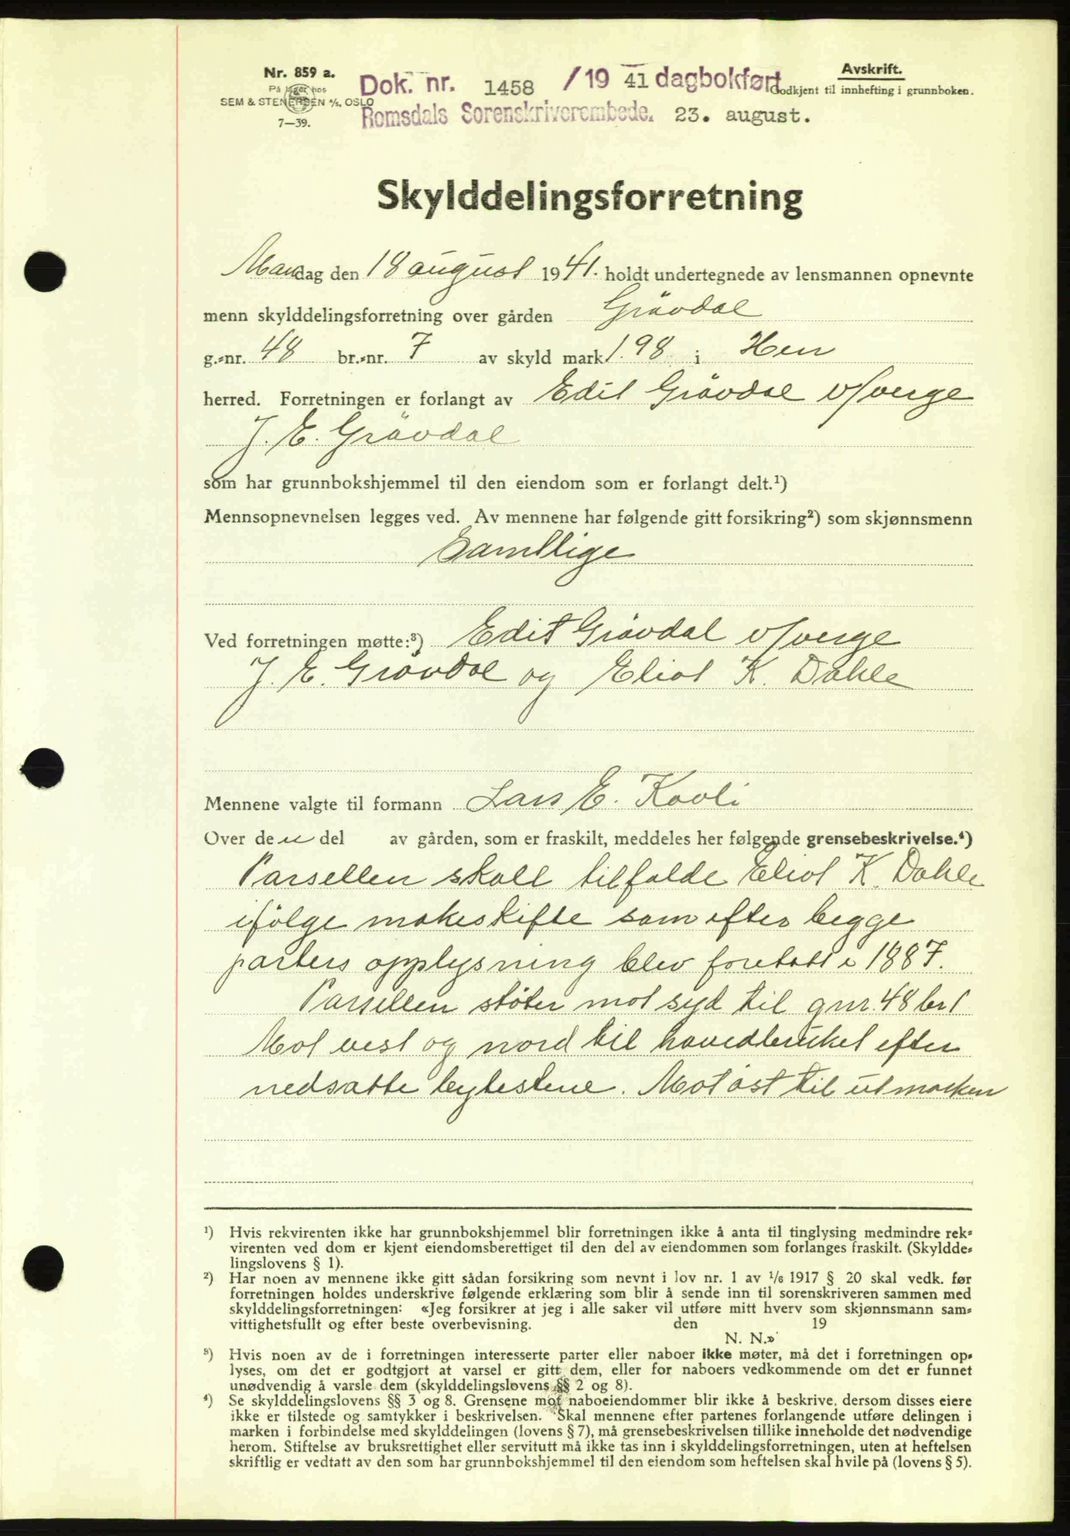 Nr. 859 a.
På lager hos
SEM & STENERSEN A/S, OSLO
7—39.
Dok. nr. 1458 /19 41 dagbokført
Romsdals Sorenskriverembede. 23. august.
Avskrift.
Godkjent til innhefting i grunnboken.
Skylddelingsforretning
Mandag den 18 august 1941. holdt undertegnede av lensmannen opnevnte
menn skylddelingsforretning over gården Grövdal
g.-nr. 48 br.-nr. 7 av skyld mark 1.98 i Hen
herred. Forretningen er forlangt av Edit Grövdal v/verge
J. E. Grövdal
som har grunnbokshjemmel til den eiendom som er forlangt delt.¹)
Mennsopnevnelsen legges ved. Av mennene har følgende gitt forsikring²) som skjønnsmenn
Samtlige
Ved forretningen møtte:³) Edit Grövdal v/verge
J. E. Grövdal og Eliot K. Dahle
Mennene valgte til formann Lars E. Kavli
Over den del av gården, som er fraskilt, meddeles her følgende grensebeskrivelse.⁴)
Parsellen skall tilfalde Eliot K. Dahle
ifölge makeskifte som efter begge
parters opplysning blev foretatt i 1887.
Parsellen stöter mot syd til gnr. 48 br 1
Mot vest og nord til hovedbruket efter
nedsatte bytestene. Mot öst til utmarken
¹) Hvis rekvirenten ikke har grunnbokshjemmel blir forretningen ikke å anta til tinglysing medmindre rek-
virenten ved dom er kjent eiendomsberettiget til den del av eiendommen som forlanges fraskilt. (Skyldde-
lingslovens § 1).
²) Har noen av mennene ikke gitt sådan forsikring som nevnt i lov nr. 1 av ¹/₆ 1917 § 20 skal vedk. før
forretningen holdes underskrive følgende erklæring som blir å sende inn til sorenskriveren sammen med
skylddelingsforretningen: «Jeg forsikrer at jeg i alle saker vil utføre mitt hverv som skjønnsmann sam-
vittighetsfullt og efter beste overbevisning. den 19
N. N.»
³) Hvis noen av de i forretningen interesserte parter eller naboer ikke møter, må det i forretningen op-
lyses, om det er godtgjort at varsel er gitt dem, eller for naboers vedkommende om det er funnet
unødvendig å varsle dem (skylddelingslovens §§ 2 og 8).
⁴) Se skylddelingslovens §§ 3 og 8. Grensene mot naboeiendommer blir ikke å beskrive, dersom disses eiere
ikke er tilstede og samtykker i beskrivelsen. Skal mennene efter partenes forlangende utføre delingen i
marken i forbindelse med skylddelingen (lovens § 7), må grensebeskrivelsen tillike inneholde det nødvendige
herom. Stiftelse av bruksrettighet eller servitutt må ikke tas inn i skylddelingsforretningen, uten at heftelsen
skriftlig er vedtatt av den som har grunnbokshjemmel til den eiendom som heftelsen skal hvile på (lovens § 5).